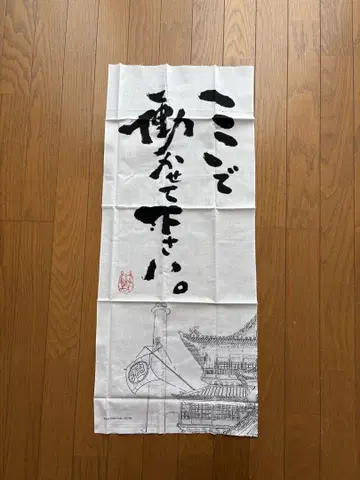 ここで
働かせて下さい。